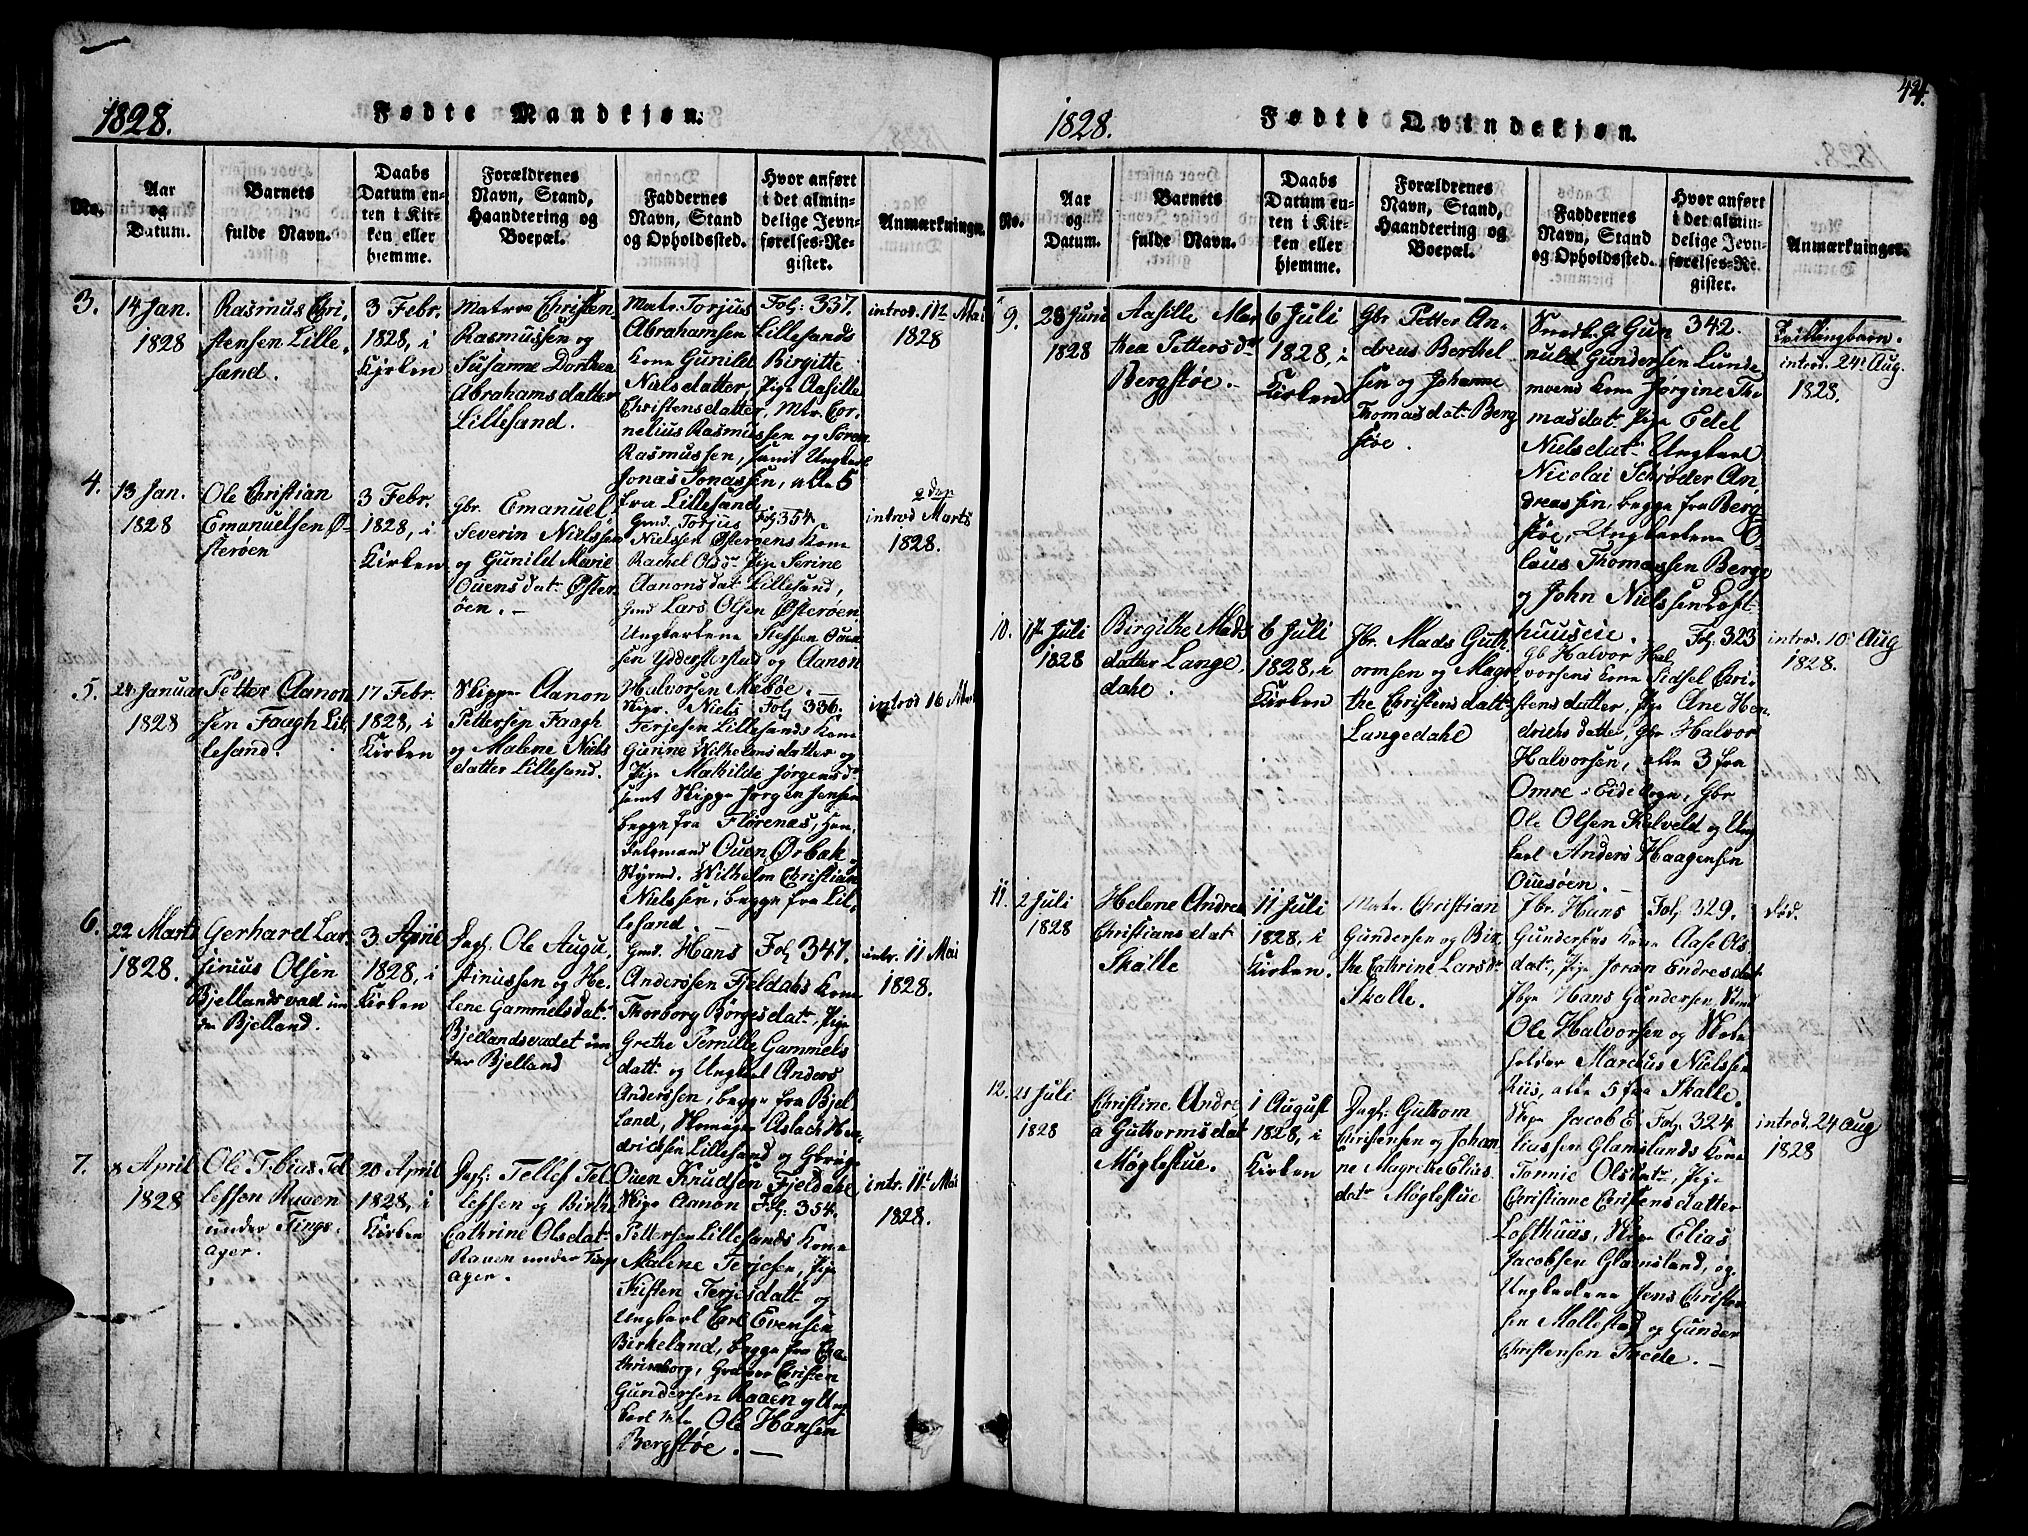 1828.
Fødte Mandkjøn.
No.
Aar
og
Datum.
Barnets
fulde Navn.
Daabs
Datum en-
ten i Kir-
ken eller
hjemme.
Forældrenes
Navn, Stand,
Haandtering og
Boepæl.
Faddernes
Navn, Stand
og Opholdssted.
Hvor anført
i det almin-
delige Jevn-
førelses-Re-
gister.
Anmærkninger.
3.
14 Jan.
1828
Rasmus Chri-
stensen Lille-
sand.
3 Febr.
1828, i
Kirken
Matros Christen
Rasmussen og
Susanne Dorthea
Abrahamsdatter
Lillesand.
Matr. Torjus
Abrahamsen Lillesands
Kone Gunild Birgitte
Nielsdatter, Pige Aasille
Christensdatter, Mtr. Cor-
nelius Rasmussen og Søren
Rasmussen, samt Ungkarl
Jonas Jonassen, alle 5
fra Lillesand
Fol: 337.
introd. 11te Mai
1828
4.
13 Jan.
1828
Ole Christian
Emanuelsen Ø-
sterøen
3 Febr.
1828, i
Kirken
Gbr. Emanuel
Severin Nielssen
og Gunild Marie
Ouensdat. Øster-
öen. -
Gmd. Torjus
Nielsen Østerøens Kone
Rachel Olsdr Pige Serine
Aanonsdat Lillesand,
Gmd Lars Olsen Østerøen
Ungkarlene Steffen Ouen-
sen Ydderstørstad og Aanon
Halvorsen Mæbøe.
Fol 354.
introd Marts
1828.
5.
24 Januar
1828
Petter Aanon-
sen Faagh Lil-
lesand.
17 Febr.
1828, i
Kirken
Skipper Aanon
Pettersen Faagh
og Malene Niels-
datter Lillesand.
Skipr. Niels
Terjesen Lillesands Kone
Gurine Wilhelmsdatter og
Pige Mathilde Jørgensdr
samt Skippr Jørgen Jensen
begge fra Florenæs, Han-
delsmand Ouen Ørbæk
Styrmd. Wilhelm Christian
Nielssen, begge fra Lil-
lesand
Fol 336.
introd 16 Marts
6.
22 Marts
1828.
Gerhard Lar-
sinius Olsen
Bjellandsvad un-
der Bjelland.
3 April
1828, i
Kirken
Inds. Ole Augu-
stinussen og He-
lene Gammelsdat.
Bjellandsvadet un-
der Bjelland
Gmd. Hans
Anderssen Fjeldahls Kone
Thorborg Børgesdatr, Pige
Grethe Pernille Gammels
datt og Ungkarl Anders
Anderssen, begge fra Bjel-
land, Skomager Aslach Hen-
drichsen Lillesand og Gbruger
Ouen Knudsen Fjeldahl
Fol 347.
intr. 11 Mai
1828.
7.
8 April
1828
Ole Tobias Tel-
lefsen Raaen
under Tings-
ager.
20 April
1828, i
Kirken
Inds: Tellef Tel-
lefsen og Birthe
Cathrine Olsdat
Raaen under Tings-
ager.
Skipr Aanon
Pettersen Lillesands Kone
Malene Terjesen, Pige
Kisten Terjesdatt og
Ungkarl Carl Evensen
Birkeland, begge fra Ca-
thrineborg, Christen
Gundersen Raaen og Ung-
karl Ole Hansen
Bergstøe. -
Fol: 354.
intr. 11te Mai
1828.
42.
1828.
Fødte Qvindekjøn.
No.
Aar
og
Datum.
Barnets
fulde Navn.
Daabs
Datum en-
ten i Kir-
ken eller
hjemme.
Forældrenes
Navn, Stand,
Haandtering og
Boepæl.
Faddernes
Navn, Stand
og Opholdssted.
Hvor anført
i det almin-
delige Jevn-
førelses-Re-
gister.
Anmærkninger.
9.
28 Juni
1828
Aasille Mar-
thea Pettersdr
Bergstøe.
6 Juli
1828, i
Kirken
Gbr Petter An-
dreas Berthel-
sen og Johanne
Thomasdat Berg-
støe.
Smedk. G. Gun-
nuld Gundersen Lunde-
moens Kone Jørgine Tho-
masdat Pige Edel
Nielsdat. Ungkarl
Nicolai Schrøder An-
dreassen, begge fra Berg-
støe, Ungkarlene O-
laus Thomassen Bergs
og John Nielssen Loft-
huuseie.
342.
Tvillingbarn.
introd. 24 Aug.
1828.
10.
1te Juli
1828
Birgithe Mads-
datter Lange-
dahl.
6 Juli
1828, i
Kirken
Gbr. Mads Guth-
ormsen og Magre-
the Christensdatt
Langedahl
Gb Halvor Hal-
vorsens Kone Sidsel Chri-
stensdatter, Pige Ane Hen-
drichsdatter, Gbr Halvor
Halvorsen, alle 3 fra
Omre i Eide Sogn, Gbr
Ole Olsen Kelveld og Ung-
karl Anders Haagensen
Ouesøen.
Fol: 323
introd. 10 Aug
1828.
11.
2 Juli
1828
Helene Andrea
Christiansdat
Skalle
11 Juli
1828, i
Kirken.
Matr. Christian
Gundersen og Bir-
the Cathrine Larsdr
Skalle.
Gbr. Hans
Gundersens Kone Aase Ols-
dat, Pige Joran Endresdat
Pbge Hans Gundersen,
Ole Halvorsen og
Marcus Nielsen
Riis, alle 5 fra Skalle.
Fol 329.
død.
12.
21 Juli
1828
Christine Andre-
a Guthormsdat
Møglestue.
1 August
1828, i
Kirken
Inds: Guttorm
Christensen og Johan-
ne Magrethe Elias-
datr Møglestue
Skpr Jacob E-
liassen Glamslands Kone
Tonnie Olsdatr, Pige
Christiane Christensdatter
Lofthuus, Skpr Elias
Jacobsen Glamsland, og
Ungkarlene Jens Christen-
sen Mollestad og Gunder
Christensen Tvede. -
Fol. 324.
introd. 24 Aug
1828